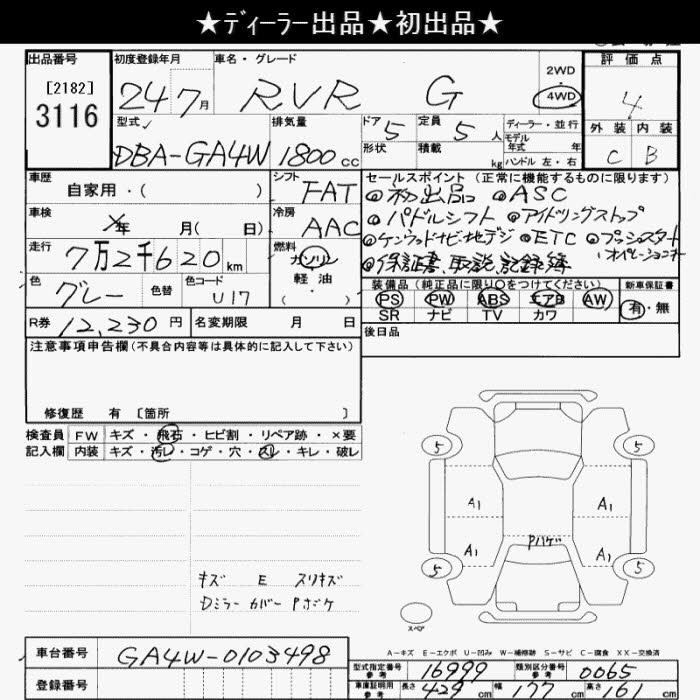 ★ディーラー出品★初出品★
出品番号 初度登録年月 車名・グレード 2WD 4WD 評価点
[2182]
3116
24年7月 RVR G 4
型式 排気量 ドア 5 定員 5人 ディーラー・並行 外装 内装
DBA-GA4W 1800cc 形状 積載 kg モデル年式 年 ハンドル 左・右 C B
車歴 シフト セールスポイント(正常に機能するものに限ります)
自家用・( ) FAT ◎初出品 ◎ASC
車検 年 月( 日) 冷房 AAC ◎パドルシフト ◎アイドリングストップ
走行 7万2千620km 燃料 ガソリン ◎ケンウッドナビ・地デジ ◎ETC ◎プッシュスタート
軽油 ( ) ◎保証書、取説、記録簿 オペレーションキー
色 グレー 色替 色コード U17
装備品(純正品に限り○をつけてください) 新車保証書
PS PW ABS エアB AW 有・無
SR ナビ TV カワ
R券 12,230円 名変期限 月 日 後日品
注意事項申告欄(不具合内容等は具体的に記入して下さい)
修復歴 有 [箇所 ]
検査員 FW キズ・飛石・ヒビ割・リペア跡・×要
記入欄 内装 キズ・汚レ・コゲ・穴・スレ・キレ・破レ
5 5
A1 A1
A1 Pハゲ A1
5 5
キズ E スリキズ
Dミラーカバー Pボケ
スペア
A-キズ E-エクボ U-凹み W-補修跡 S-サビ C-腐食 XX-交換済
車台番号 GA4W-0103498
型式指定番号 参考 16999 類別区分番号 参考 0065
登録番号
車庫証明用 参考 長さ 429cm 幅 177cm 高さ 161cm